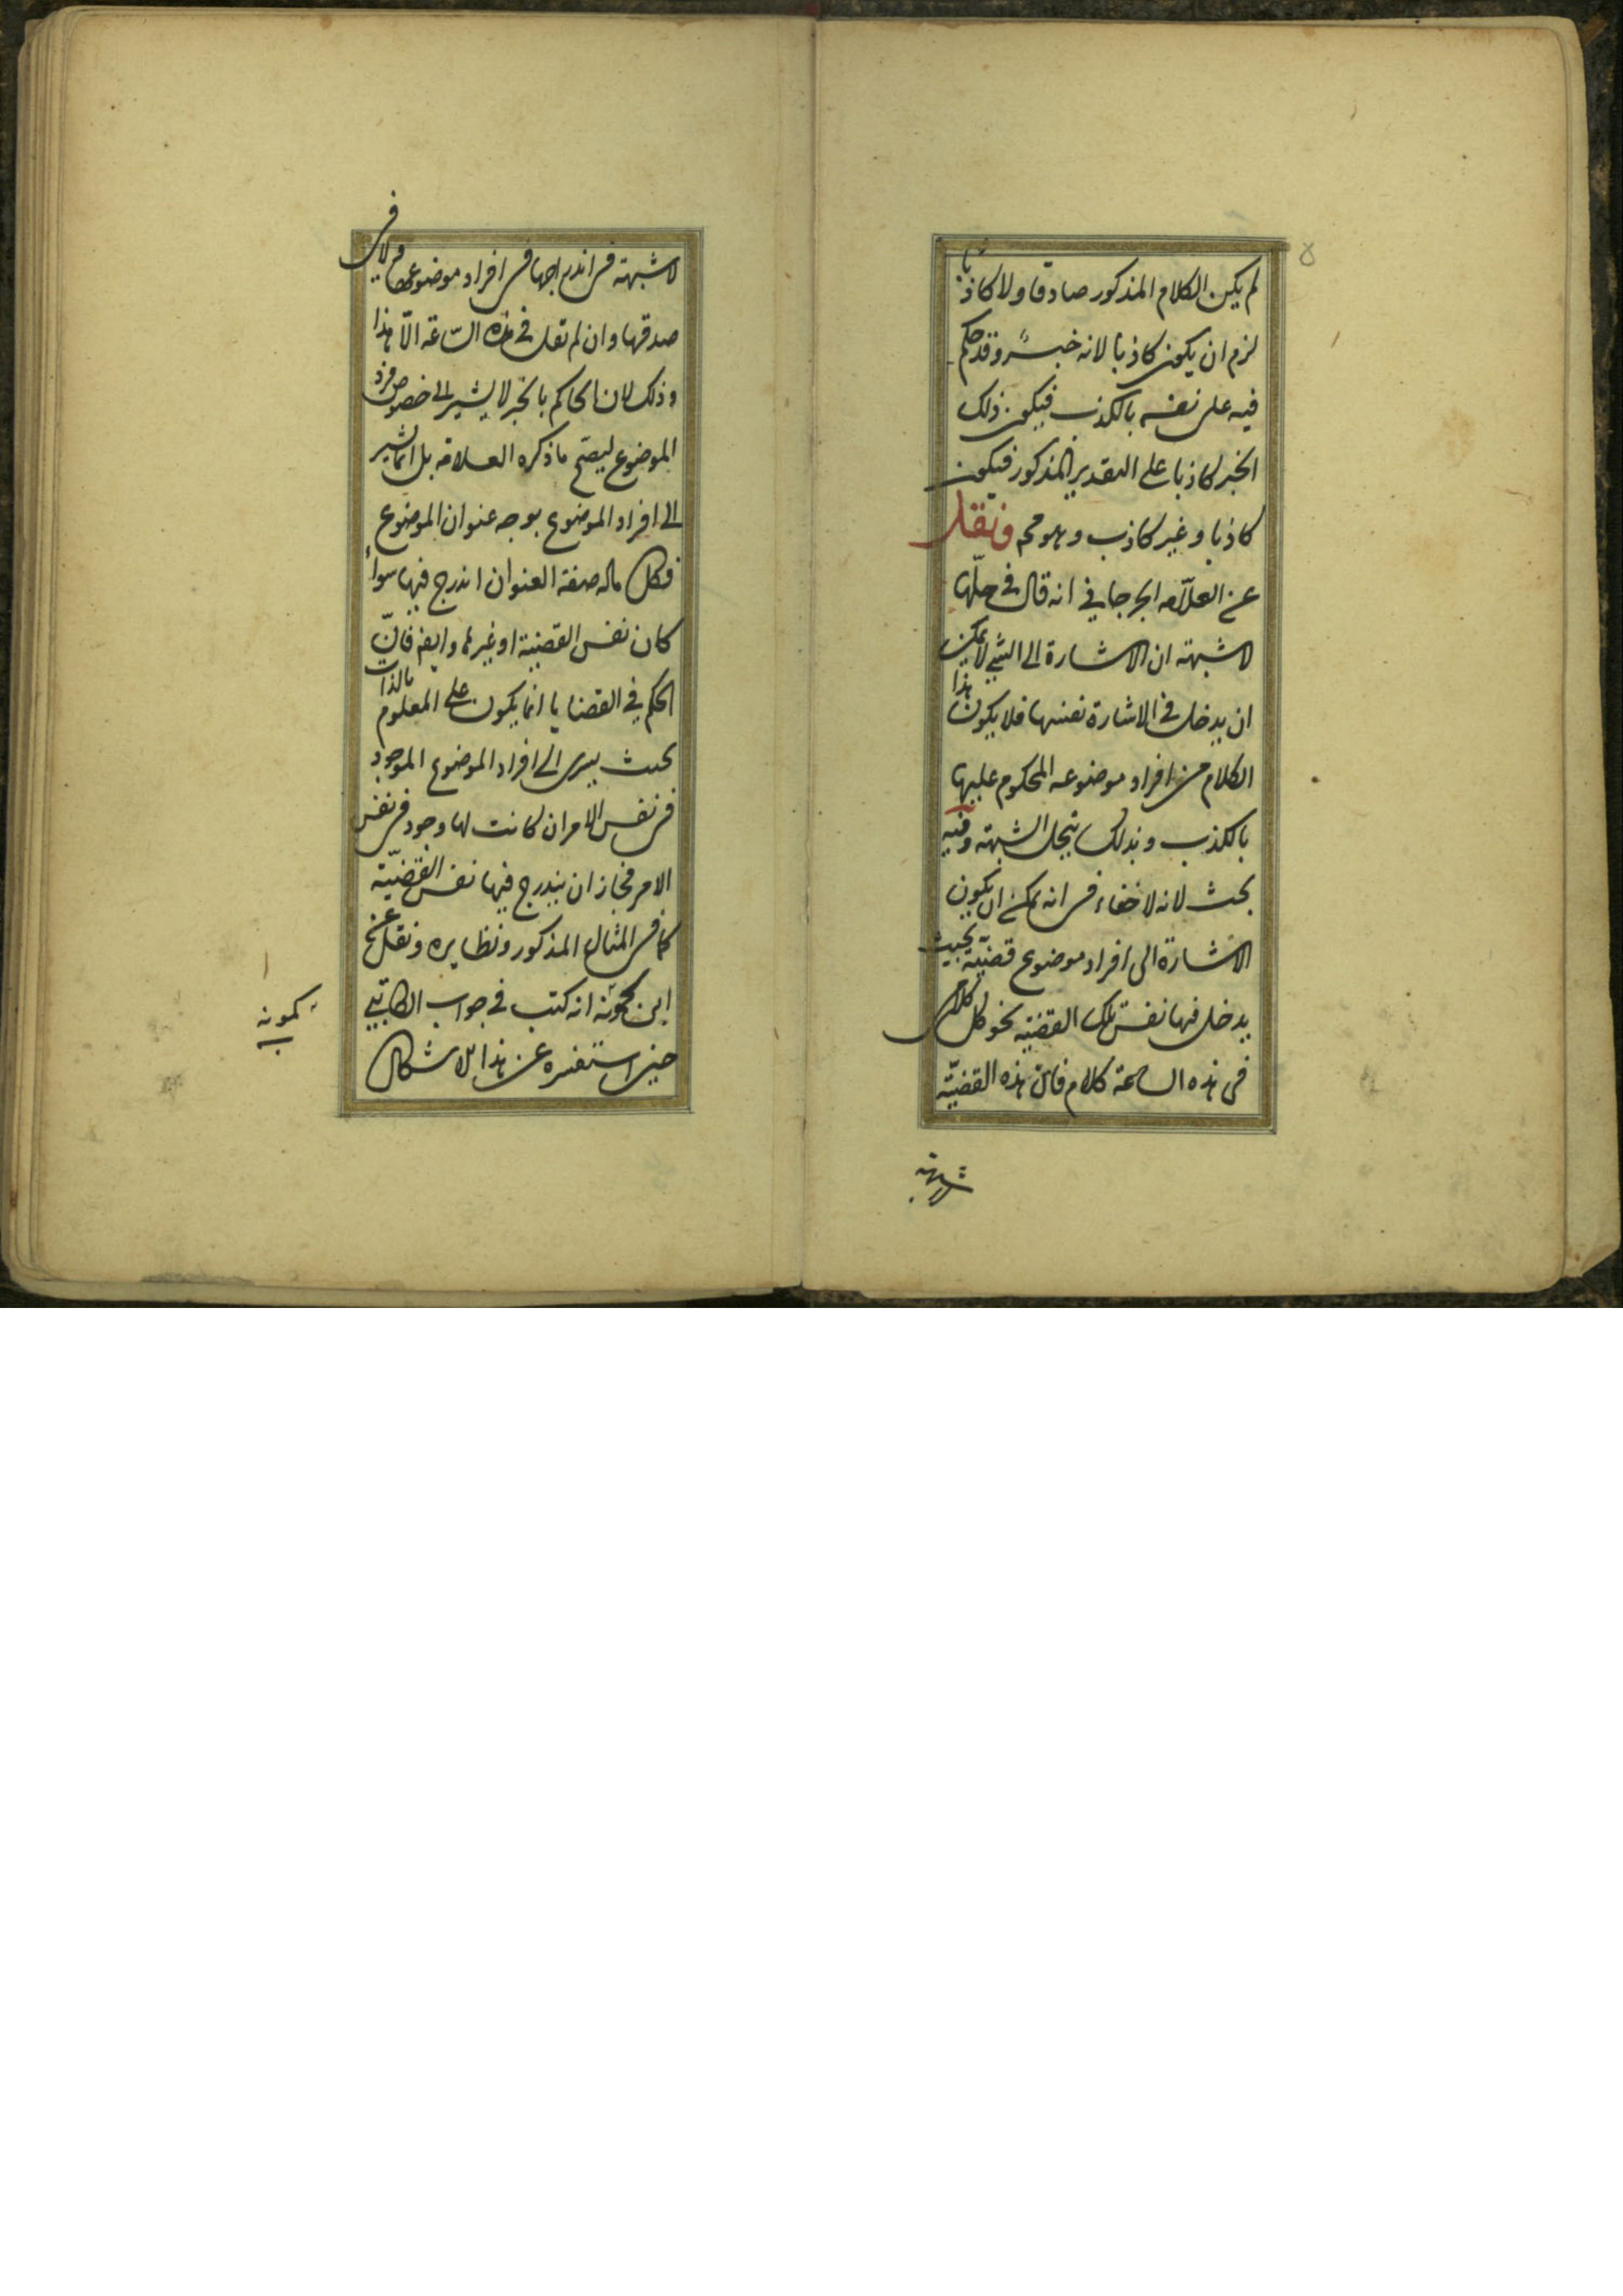 ٥
لم يكن الكلام المذكور صادقا ولا كاذبا
لزم ان يكون كاذبا لانه خبر وقد حكم
فيه على نفسه بالكذب فيكون ذلك
الخبر كاذبا على التقدير المذكور فيكون
كاذبا وغير كاذب وهو مح ونقل
عن العلّامه الجرجاني انه قال في حلّها
لا شبهة ان الاشارة الى الشيء لا يمكن
ان يدخل في الاشارة نفسها فلا يكون هذا
الكلام من افراد موضوعه المحكوم عليها
بالكذب وبذلك ينحل الشبهة وفيه
بحث لانه لا خفاء فى انه يمكن ان يكون
الاشارة الى افراد موضوع قضيّة بحيث
يدخل فيها نفس تلك القضية نحو كل كلامى
فى هذه الساعة كلام فانّ هذه القضيّة
لا شبهة
لا شبهة فى اندراجها فى افراد موضوعها ولا فى
صدقها وان لم تقل في هذه السّاعة الّا هذا
وذلك لان الحاكم بالخبر لا يشير الى خصوص فرد
الموضوع ليصح ما ذكره العلامة بل انما يشير
الى افراد الموضوع بوجه عنوان الموضوع
فكل ماله صفة العنوان اندرج فيها سواء
كان نفس القضية او غيرها وايضا فانّ
الحكم في القضايا انما يكون على المعلوم بالذات
بحيث يسرى الى افراد الموضوع الموجود
فى نفس الامر ان كانت لها وجود فى نفس
الامر فجاز ان يندرج فيها نفس القضيّة
كما فى المثال المذكور ونظايره ونقل عن
ابن كمونة انه كتب في جواب الكاتبي
حين استفسره عن هذا الاشكال
كمونه